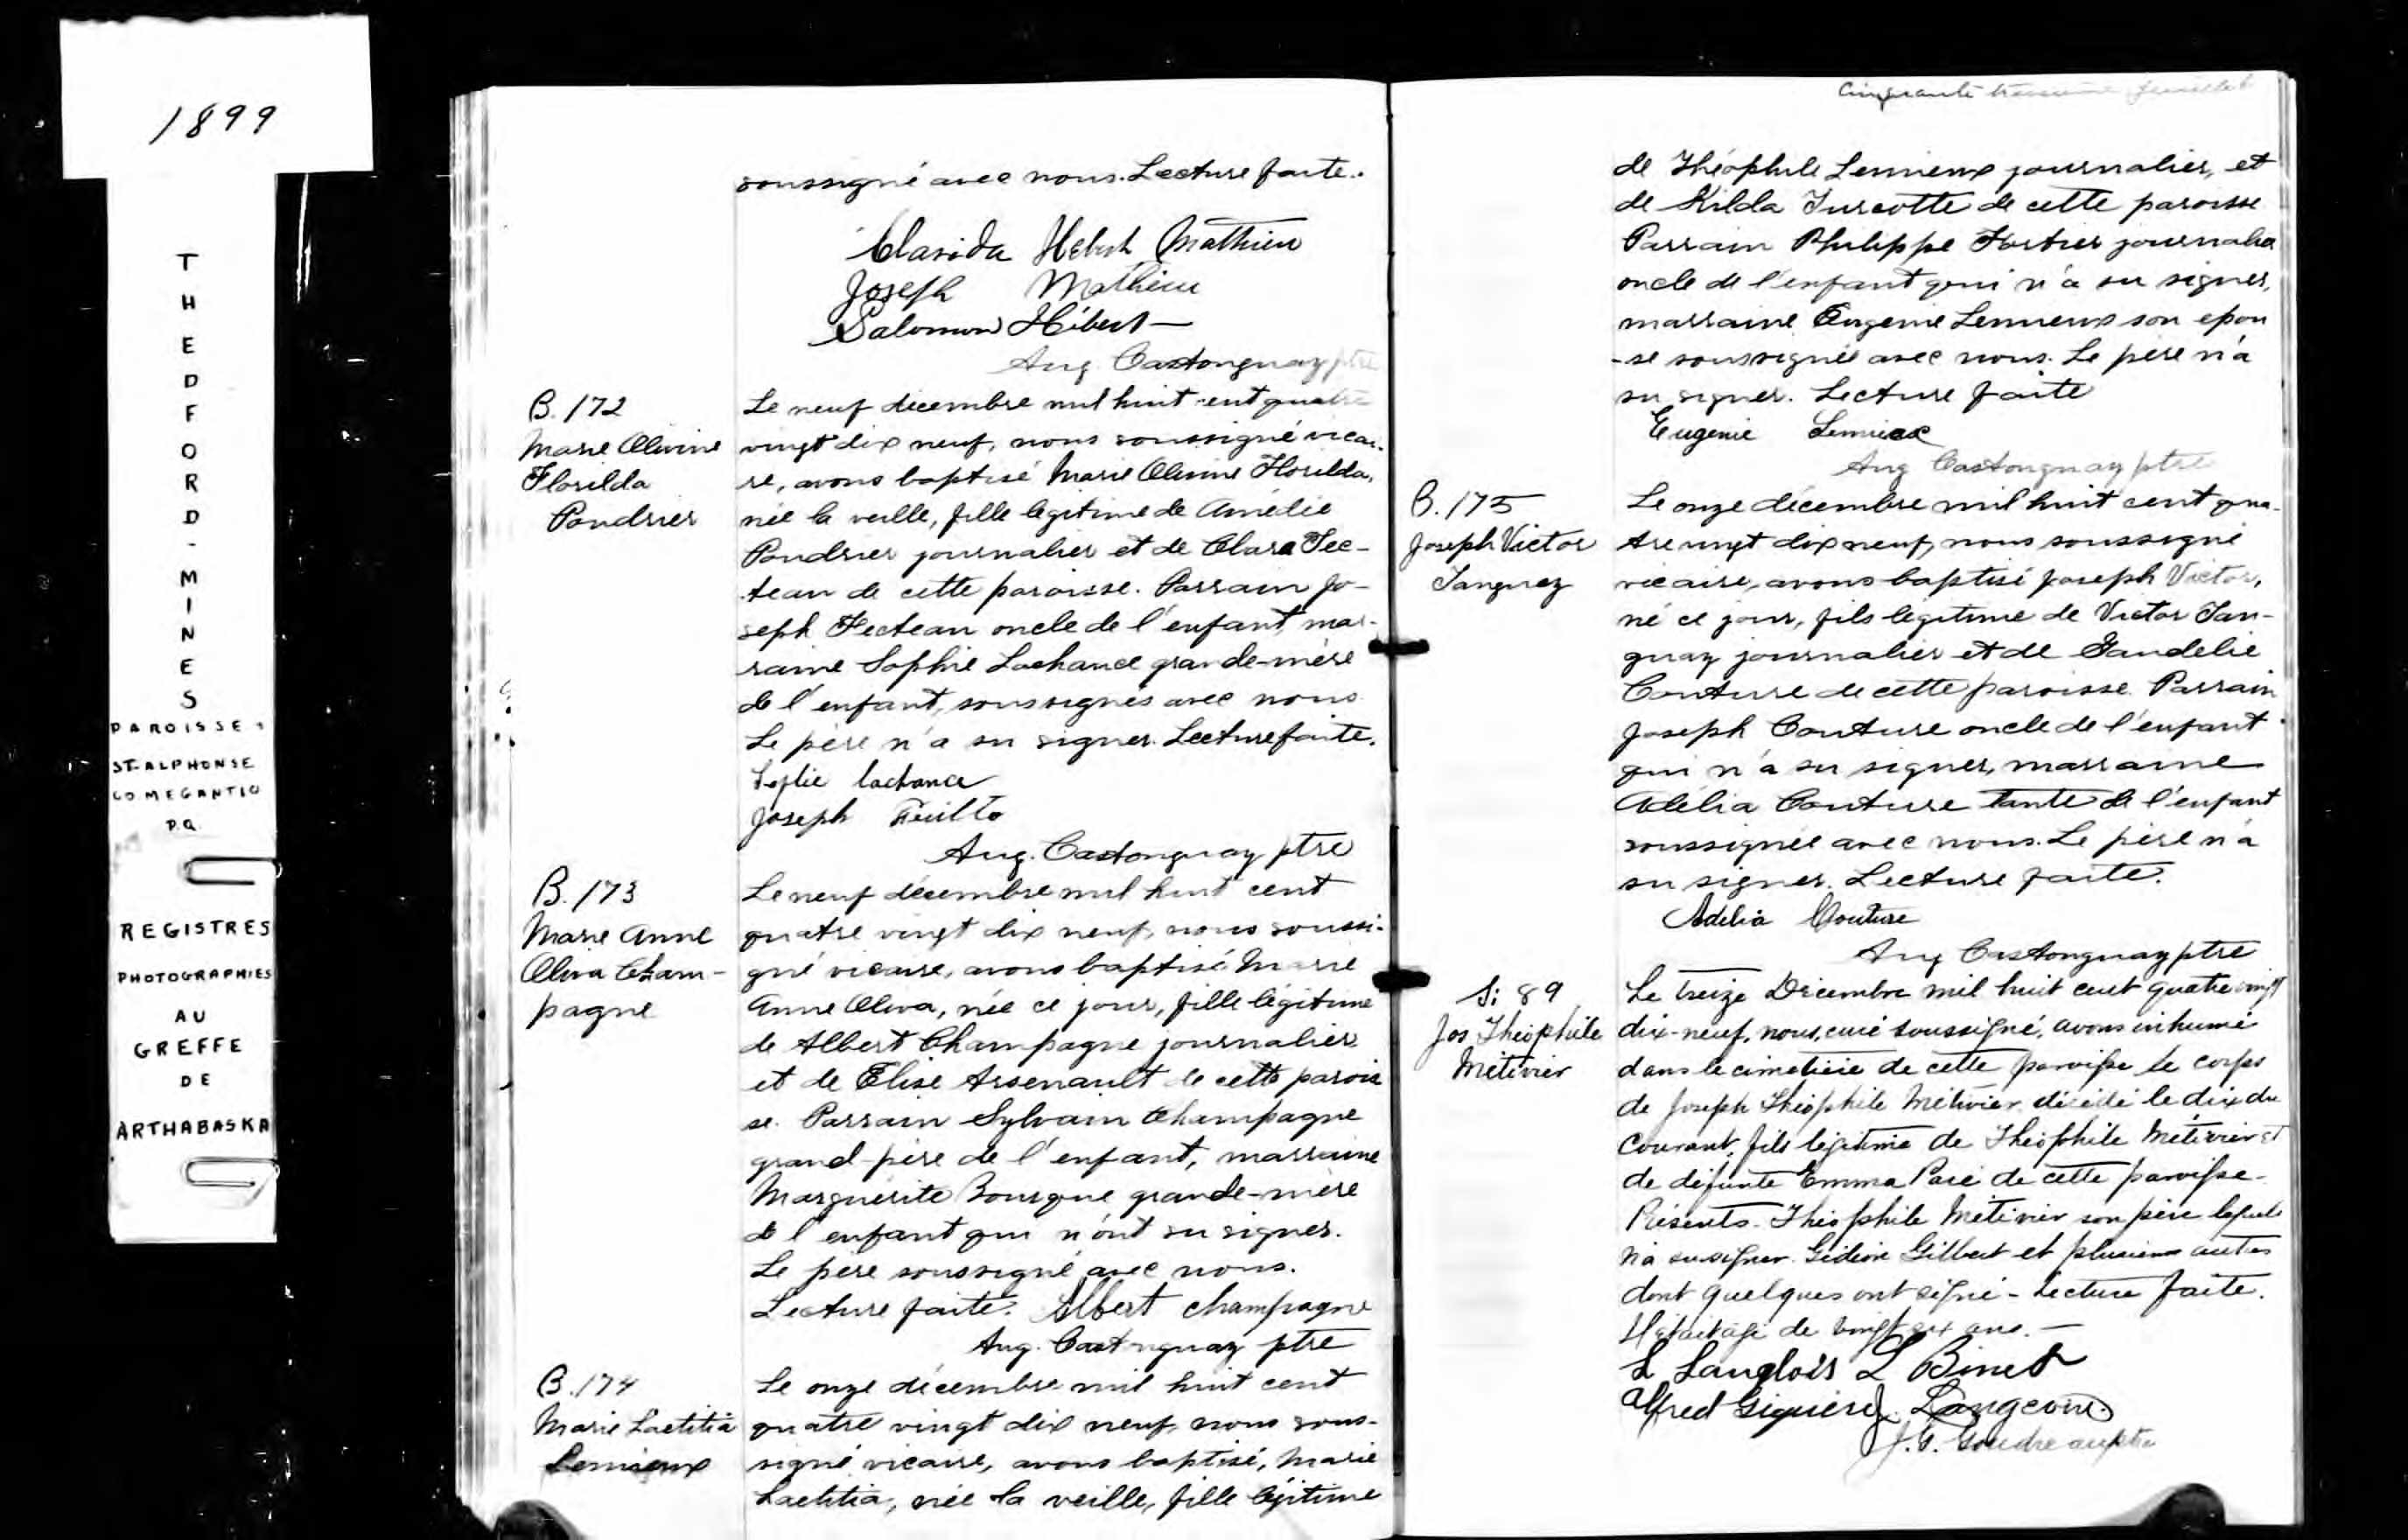 1899
THEDFORD-MINES
PAROISSE
ST-ALPHONSE
CO. MEGANTIC
P.Q.
REGISTRES
PHOTOGRAPHIES
AU
GREFFE
DE
ARTHABASKA
soussigné avec nous. Lecture faite.
Clarida Hebert Mathieu
Joseph Mathieu
Salomon Hébert
Aug. Castonguay ptre
B. 172
Marie Olivine
Florilda
Poudrier
Le neuf décembre mil huit cent quatre
vingt dix neuf, nous soussigné vicai-
re, avons baptisé Marie Olivine Florilda,
née la veille, fille légitime de Amédée
Poudrier journalier et de Clara Fec-
teau de cette paroisse. Parrain Jo-
seph Fecteau oncle de l'enfant, mar-
raine Sophie Lachance grande-mère
de l'enfant, soussignés avec nous
Le père n'a su signer. Lecture faite.
Sophie lachance
Joseph
Aug. Castonguay ptre
B. 173
Marie Anne
Oliva Cham-
pagne
Le neuf décembre mil huit cent
quatre vingt dix neuf, nous soussi-
gné vicaire, avons baptisé Marie
Anne Oliva, née ce jour, fille légitime
de Albert Champagne journalier
et de Elise Arsenault de cette parois
se. Parrain Sylvain Champagne
grand-père de l'enfant, marraine
Marguérite Bourque grande-mère
de l'enfant qui n'ont su signer.
Le père soussigné avec nous.
Lecture faite. Albert Champagne
Aug. Castonguay ptre
B. 174
Marie Laetitia
Lemieux
Le onze décembre mil huit cent
quatre vingt dix neuf, nous sous-
signé vicaire, avons baptisé, Marie
Laetitia, née la veille, fille légitime
Cinquante troisième feuillet
de Théophile Lemieux journalier, et
de Kilda Turcotte de cette paroisse
Parrain Philippe Fortier journalier
oncle de l'enfant qui n'a su signer,
marraine Eugenie Lemieux son epou
-se soussignée avec nous. Le père n'a
su signer. Lecture faite
Eugenie Lemieux
Aug Castonguay ptre
B. 175
Joseph Victor
Tanguay
Le onze décembre mil huit cent qua-
tre vingt dix neuf, nous soussigné
vicaire, avons baptisé Joseph Victor,
né ce jour, fils légitime de Victor Tan-
guay journalier et de
Couture de cette paroisse. Parrain
Joseph Couture oncle de l'enfant
qui n'a su signer, marraine
Adélia Couture tante de l'enfant
soussignée avec nous. Le père n'a
su signer. Lecture faite.
Adelia Couture
Aug Castonguay ptre
S: 89
Jos Théophile
Métivier
Le treize Décembre mil huit cent quatre vingt
dix-neuf, nous, curé soussigné, avons inhumé
dans le cimetière de cette paroisse le corps
de Joseph Théophile Métivier décédé le dix du
courant, fils légitime de Théophile Métivier et
de défunte Emma Paré de cette paroisse-
Présents - Théophile Métivier son père lequel
n'a su signer. Gédéon Gilbert et plusieurs autres
dont quelques ont signé - Lecture faite.
Il était âgé de vingt six ans. -
L Langlois L Binet
Alfred Giguère J. Langevin